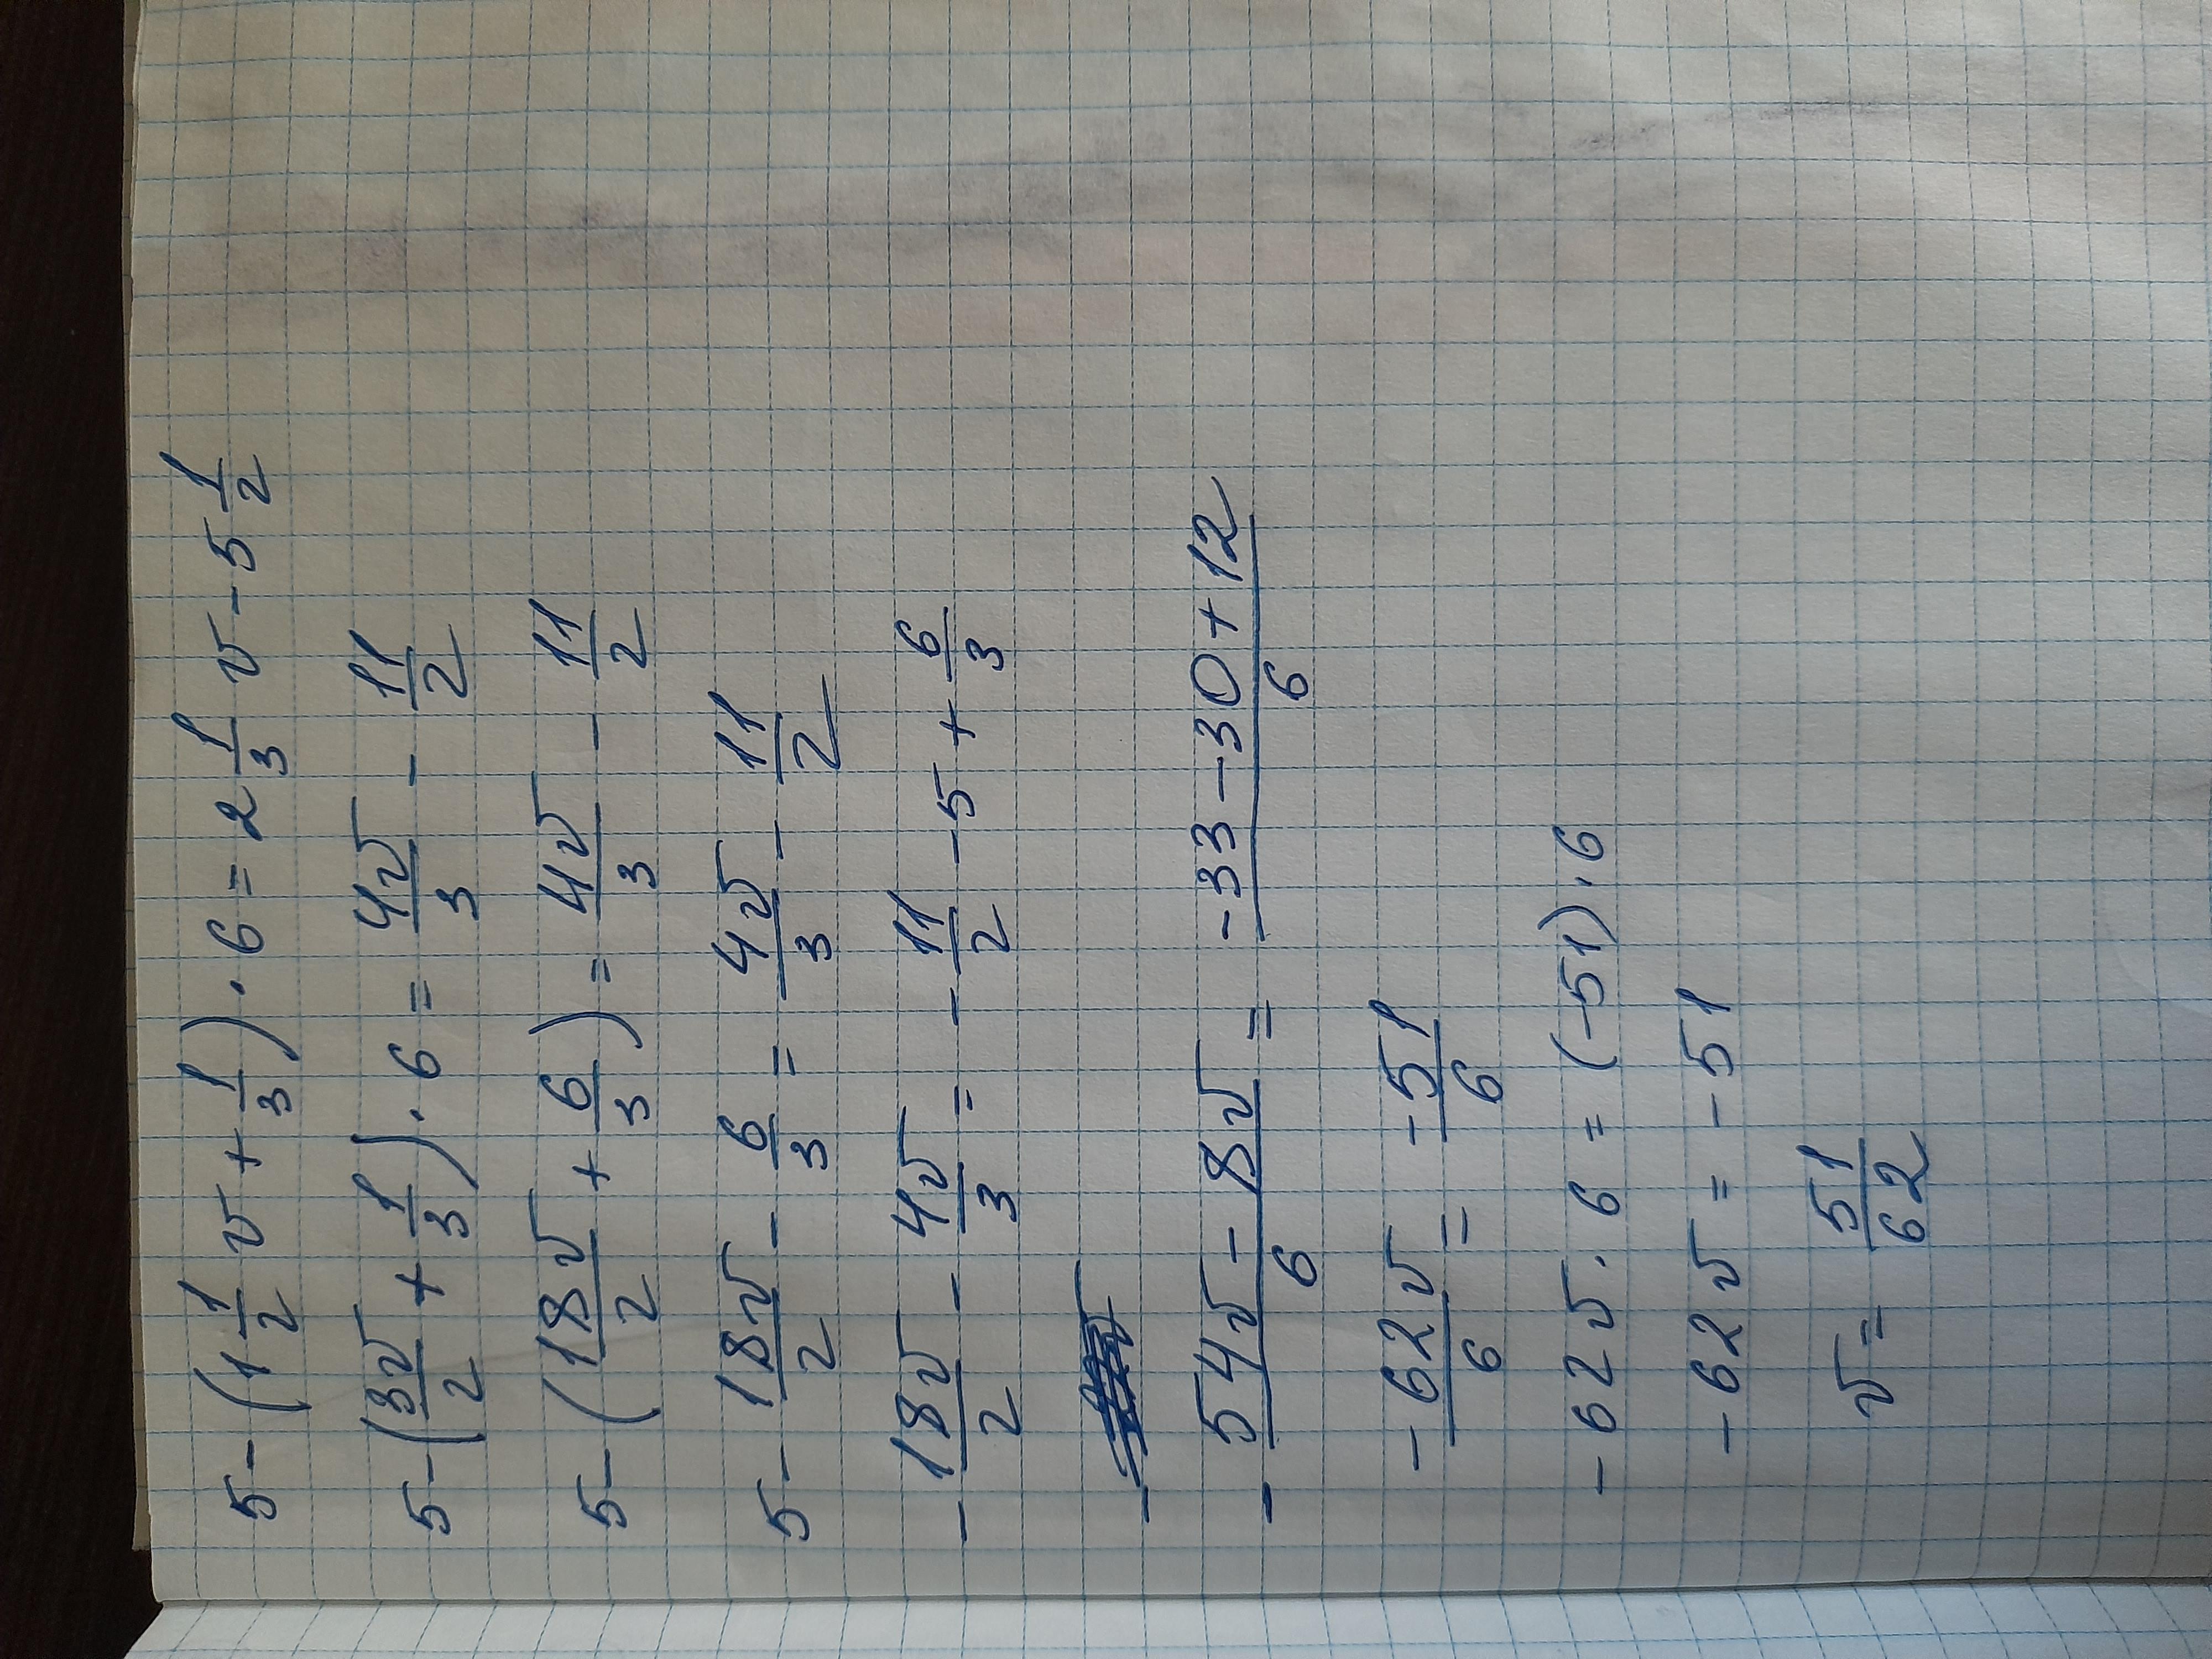 5-(1 1/2 v + 1/3)·6 = 2 1/3 v - 5 1/2
5-(3v/2 + 1/3)·6 = 4v/3 - 11/2
5-(18v/2 + 6/3) = 4v/3 - 11/2
5 - 18v/2 - 6/3 = 4v/3 - 11/2
- 18v/2 - 4v/3 = - 11/2 - 5 + 6/3
-
- (54v - 8v)/6 = (-33 - 30 + 12)/6
-62v/6 = -51/6
-62v·6 = (-51)·6
-62v = -51
v = 51/62